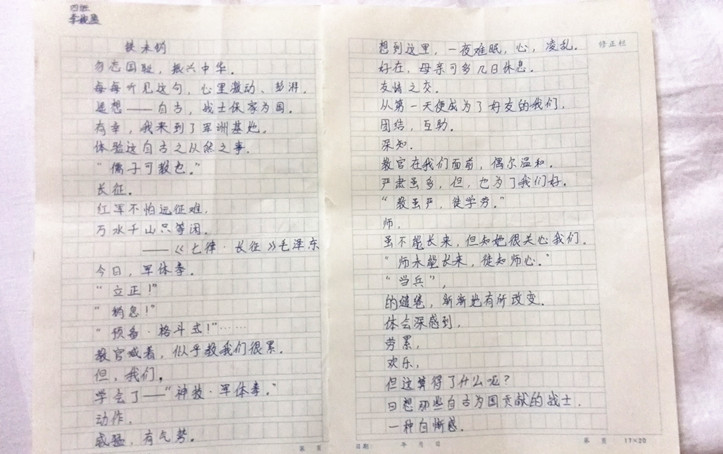 四班
铁木钧
勿忘国耻，振兴中华。
每每听见这句，心里激动、澎湃。
遥想——自古，战士保家为国。
有幸，我来到了军训基地。
体验这自古之从然之事。
“儒子可教也。”
长征。
红军不怕远征难，
万水千山只等闲。
——《七律·长征》毛泽东
今日，军体拳。
“立正！”
“稍息！”
“预备·格斗式！”……
教官喊着，似乎教我们很累。
但，我们。
学会了——“神教·军体拳。”
动作，
威猛，有气势。
想到这里，一夜难眠，心，凌乱。
好在，母亲可多几日休息。
友情之交。
从第一天便成为了好友的我们，
团结，互助。
深知。
教官在我们面前，偶尔温和。
严肃虽多，但，也为了我们好。
“教虽严，徒学劳。”
师，
虽不能长来，但知她很关心我们。
“师未能长来，徒知师心。”
“当兵”，
的缝卷，渐渐地有所改变。
体会深感到，
劳累，
欢乐，
但这算得了什么呢？
日想那些自古为国贡献的战士，
一种自惭感。
修正栏
第 页
日期 年 月 日
第 页 17×20